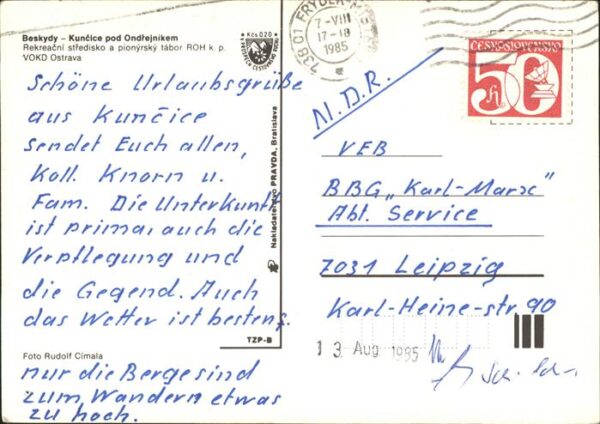 Beskydy – Kunčice pod Ondřejníkem
Rekreační středisko a pionýrský tábor ROH k. p.
VOKD Ostrava
Kčs 0,20
Schöne Urlaubsgrüße
aus Kunčice
sendet Euch allen,
Koll. Knorn u.
Fam. Die Unterkunft
ist prima, auch die
Verpflegung und
die Gegend. Auch
das Wetter ist bestens.
Foto Rudolf Cimala
nur die Berge sind
zum Wandern etwas
zu hoch.
Nakladatelstvo PRAVDA, Bratislava
TZP-B
738 01 FRÝDEK-
7-VIII
17-18
1985
ČESKOSLOVENSKO
50
h
N.D.R.
VEB
BBG „Karl-Marx"
Abt. Service
7031 Leipzig
Karl-Heine-str. 90
13 Aug 1985